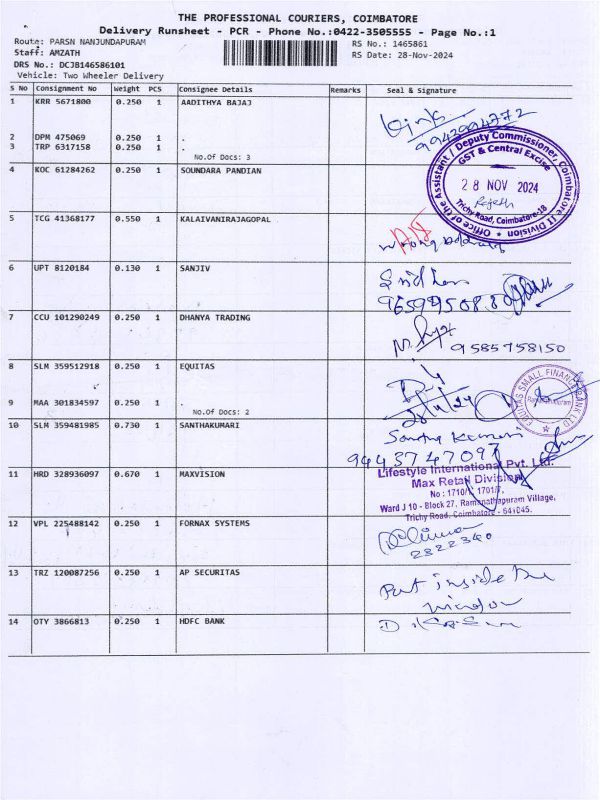 THE PROFESSIONAL COURIERS, COIMBATORE
Delivery Runsheet - PCR - Phone No.:0422-3505555 - Page No.:1
Route: PARSN NANJUNDAPURAM
RS No.: 1465861
Staff: AMZATH
RS Date: 28-Nov-2024
DRS No.: DCJB146586101
Vehicle: Two Wheeler Delivery
S No Consignment No Weight PCS Consignee Details Remarks Seal & Signature
1 KRR 5671800 0.250 1 AADITHYA BAJAJ
2 DPM 475069 0.250 1 .
3 TRP 6317158 0.250 1 .
No.Of Docs: 3
Office of the Assistant / Deputy Commissioner, Coimbatore II Division
GST & Central Excise
28 NOV 2024
Trichy Road, Coimbatore-18
4 KOC 61284262 0.250 1 SOUNDARA PANDIAN
5 TCG 41368177 0.550 1 KALAIVANIRAJAGOPAL
wrong address
6 UPT 8120184 0.130 1 SANJIV
7 CCU 101290249 0.250 1 DHANYA TRADING
9585758150
8 SLM 359512918 0.250 1 EQUITAS
9 MAA 301834597 0.250 1 .
No.Of Docs: 2
28/11/24
EQUITAS SMALL FINANCE BANK LTD
10 SLM 359481985 0.730 1 SANTHAKUMARI
9443747097
11 HRD 328936097 0.670 1 MAXVISION
Lifestyle International Pvt. Ltd.
Max Retail Division
No : 1710/1, 1701/7,
Ward J 10 - Block 27, Ramanathapuram Village,
Trichy Road, Coimbatore - 641045.
12 VPL 225488142 0.250 1 FORNAX SYSTEMS
2322340
13 TRZ 120087256 0.250 1 AP SECURITAS
Put inside the
window
14 OTY 3866813 0.250 1 HDFC BANK